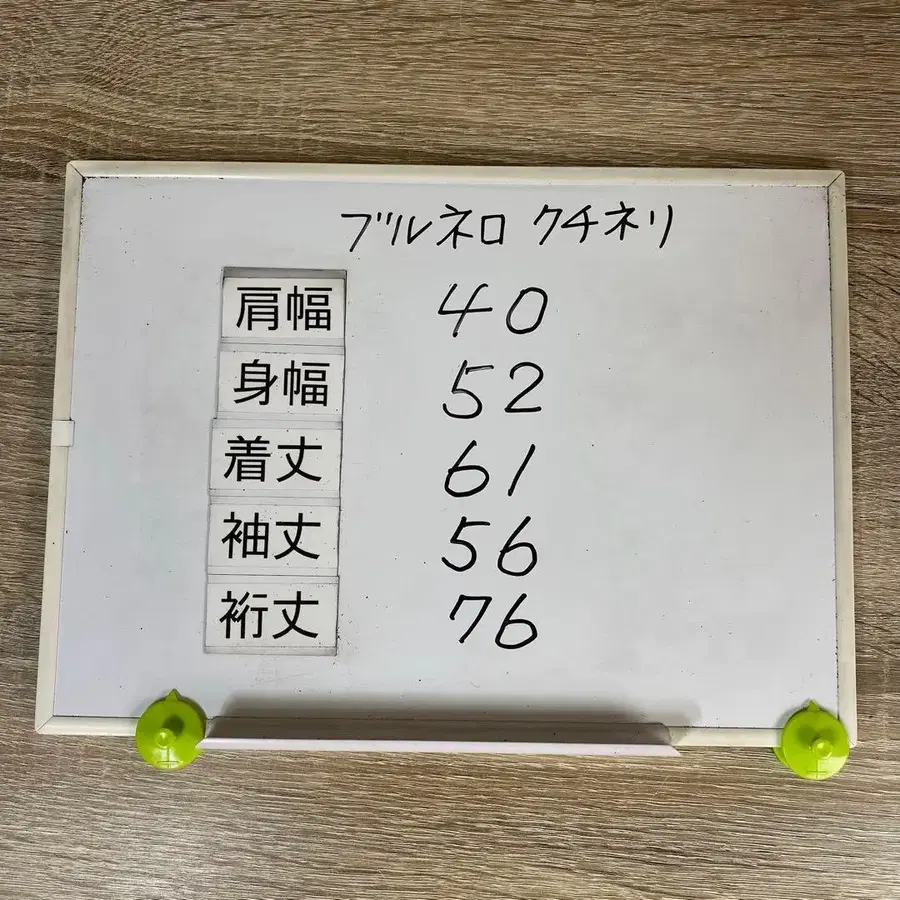 ブルネロ クチネリ
肩幅 40
身幅 52
着丈 61
袖丈 56
裄丈 76